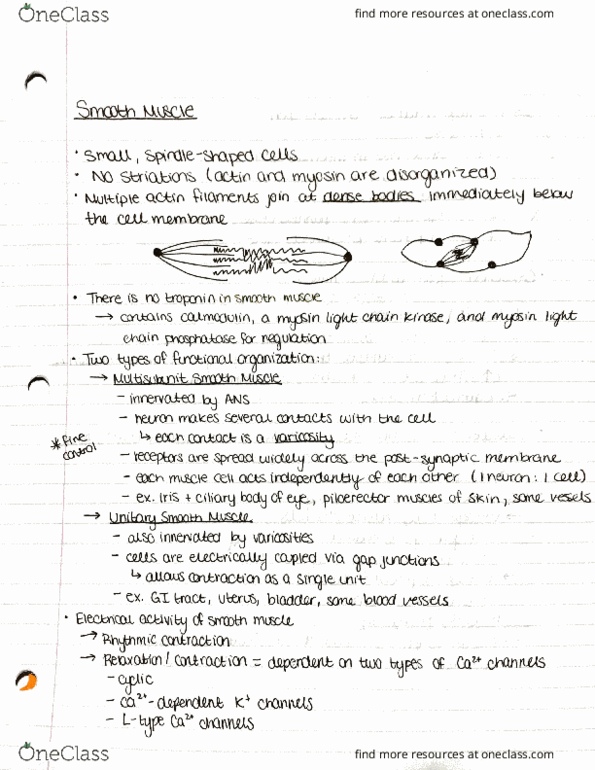 OneClass
find more resources at oneclass.com
Smooth Muscle
· Small, spindle-shaped cells
· No striations (actin and myosin are disorganized)
· Multiple actin filaments join at dense bodies immediately below
the cell membrane
· There is no troponin in smooth muscle
→ contains calmodulin, a myosin light chain kinase, and myosin light
chain phosphatase for regulation
· Two types of functional organization:
→ Multisubunit Smooth Muscle
- innervated by ANS
- neuron makes several contacts with the cell
↳ each contact is a varicosity
* fine
control
- receptors are spread widely across the post-synaptic membrane
- each muscle cell acts independently of each other (1 neuron: 1 cell)
- ex. Iris + ciliary body of eye, piloerector muscles of skin, some vesels
→ Unitary Smooth Muscle
- also innervated by varicosities
- cells are electrically coupled via gap junctions
↳ allows contraction as a single unit
- ex. GI tract, uterus, bladder, some blood vessels
· Electrical activity of smooth muscle
→ Rhythmic contraction
→ Relaxation/contraction = dependent on two types of Ca²⁺ channels
- cyclic
- Ca²⁺-dependent K⁺ channels
- L-type Ca²⁺ channels
OneClass
find more resources at oneclass.com